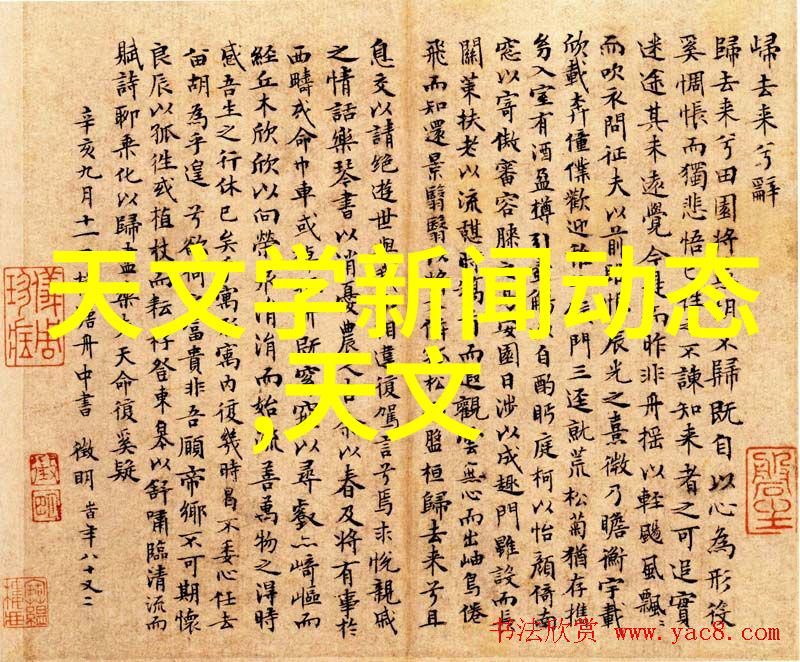 歸去来兮辭
歸去来兮田園將蕪胡不歸既自以心為形役
奚惆悵而獨悲悟已往之不諫知来者之可追實
迷途其未遠覺今是而昨非舟摇以輕颺風飄〻
而吹衣問征夫以前路恨晨光之熹微乃瞻衡宇載
欣載奔僮僕歡迎稚門三逕就荒松菊猶存攜
幼入室有酒盈樽引壺觴以自酌眄庭柯以怡顔倚南
窓以寄傲審容膝之易安園日涉以成趣門雖設而長
關策扶老以流憩時矯首而遐觀雲無心而出岫鳥倦
飛而知還景翳翳以將松而盤桓歸去来兮且
息交以請絶遊世與我而相違復駕言兮焉求悦親戚
之情話樂琴書以消憂農人告余以春及將有事於
西疇或命巾車或棹舟既窈窕以尋壑亦崎嶇而
經丘木欣欣以向榮泉涓涓而始流善萬物之得時
感吾生之行休已矣乎寓形宇內復幾時曷不委心任去
留胡為乎遑兮欲何富貴非吾願帝鄉不可期懷
良辰以孤徃或植杖而耘耔登東皋以舒嘯臨清流而
賦詩聊乘化以歸盡樂夫天命復奚疑
辛亥九月十一居舟中書 徵明 旹年八十又二
天文学新闻动态
,天文
书法欣赏 www.yac8.com